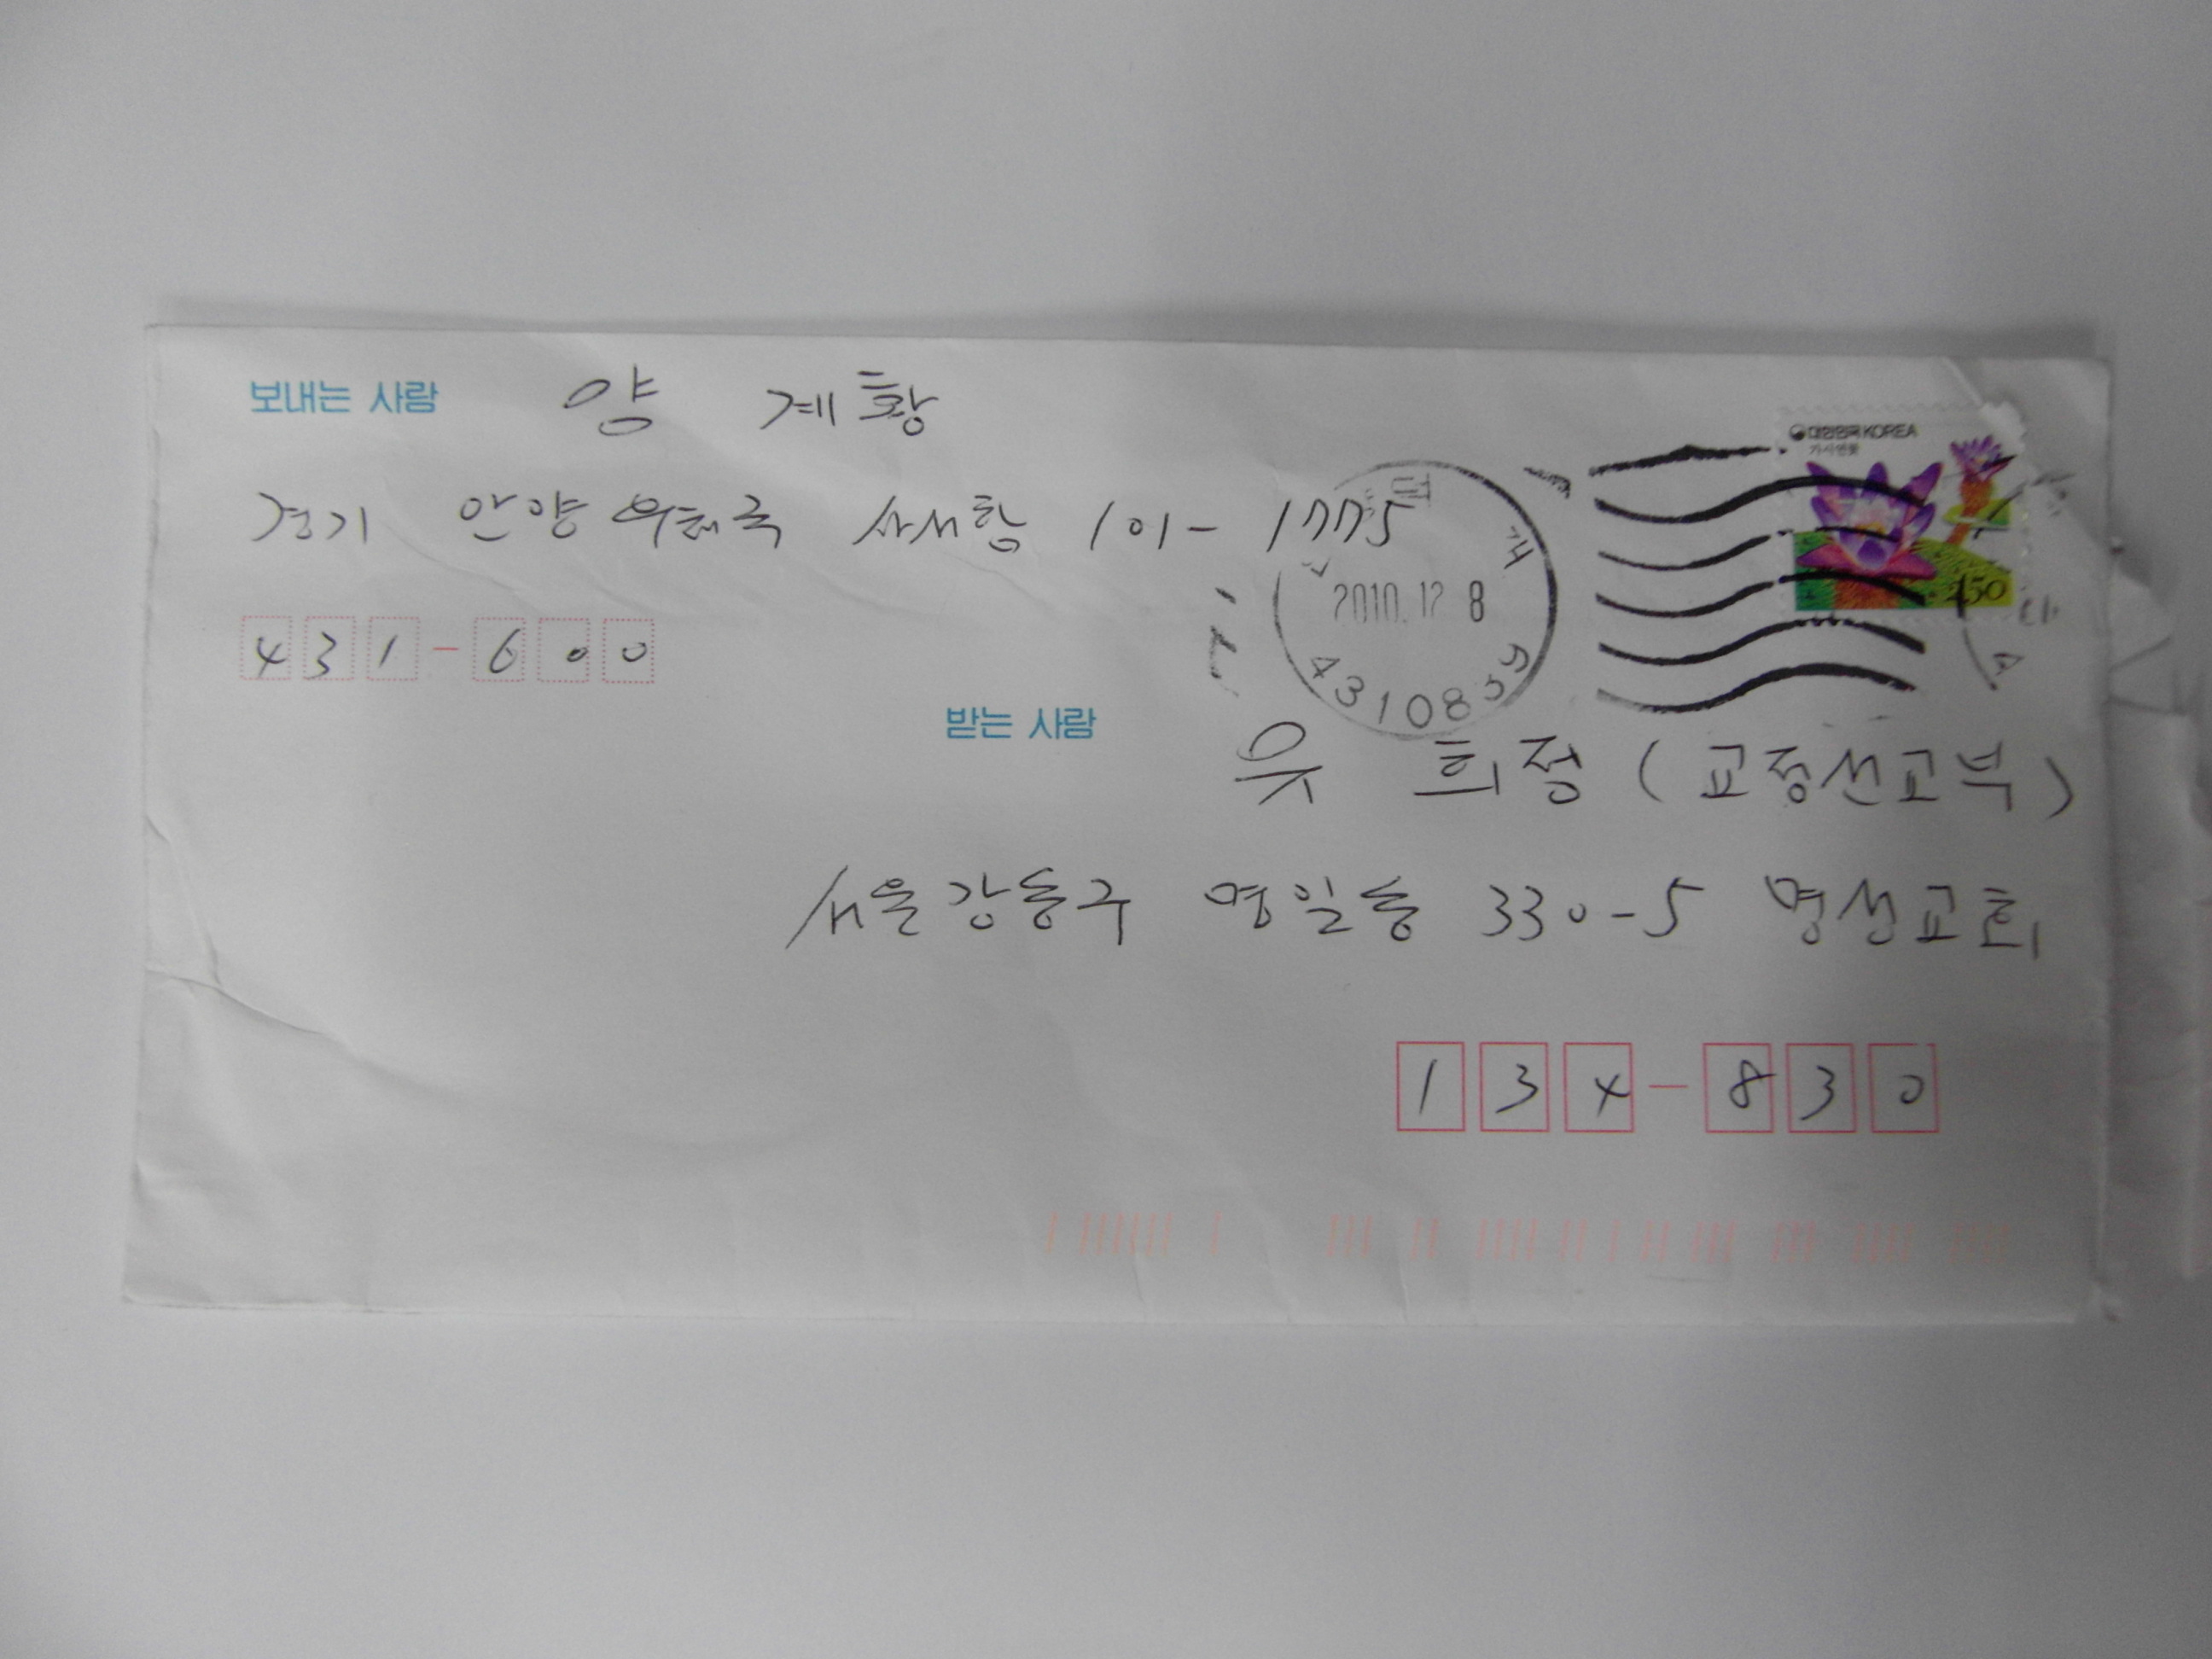 보내는 사람 양 계황
경기 안양우체국 사서함 101-1775
431-600
대한민국 KOREA
가시연꽃
450
2010.12 8
4310839
받는 사람
유 희정 (교정선교부)
서울강동구 명일동 330-5 명선교회
134-830